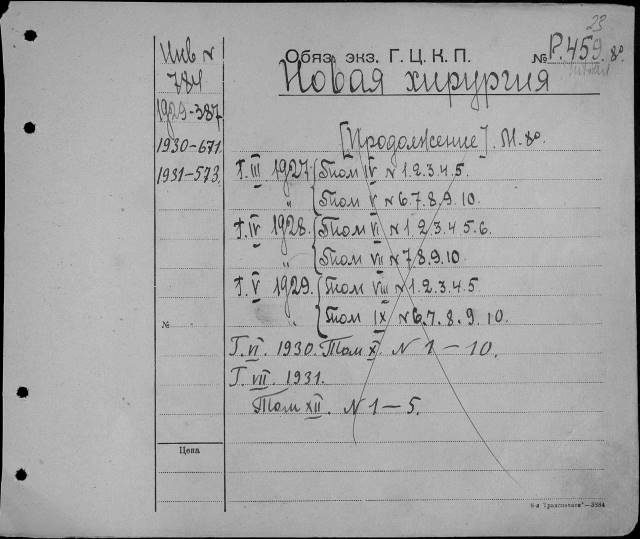 23
Инв №
784
Обяз. экз. Г. Ц. К. П.
№ Р.459. 8º
Новая хирургия
1929-387
1930-671.
1931-573.
[Продолжение]. М. 8º
Г. III 1927. Том IV № 1.2.3.4.5.
" Том V № 6.7.8.9.10.
Г. IV 1928. Том VI № 1.2.3.4.5.6.
" Том VII № 7.8.9.10.
Г. V 1929. Том VIII № 1.2.3.4.5.
" Том IX № 6.7.8.9.10.
№
Г. VI. 1930. Том X. № 1-10.
Г. VII. 1931.
Том XII. № 1-5.
Цена